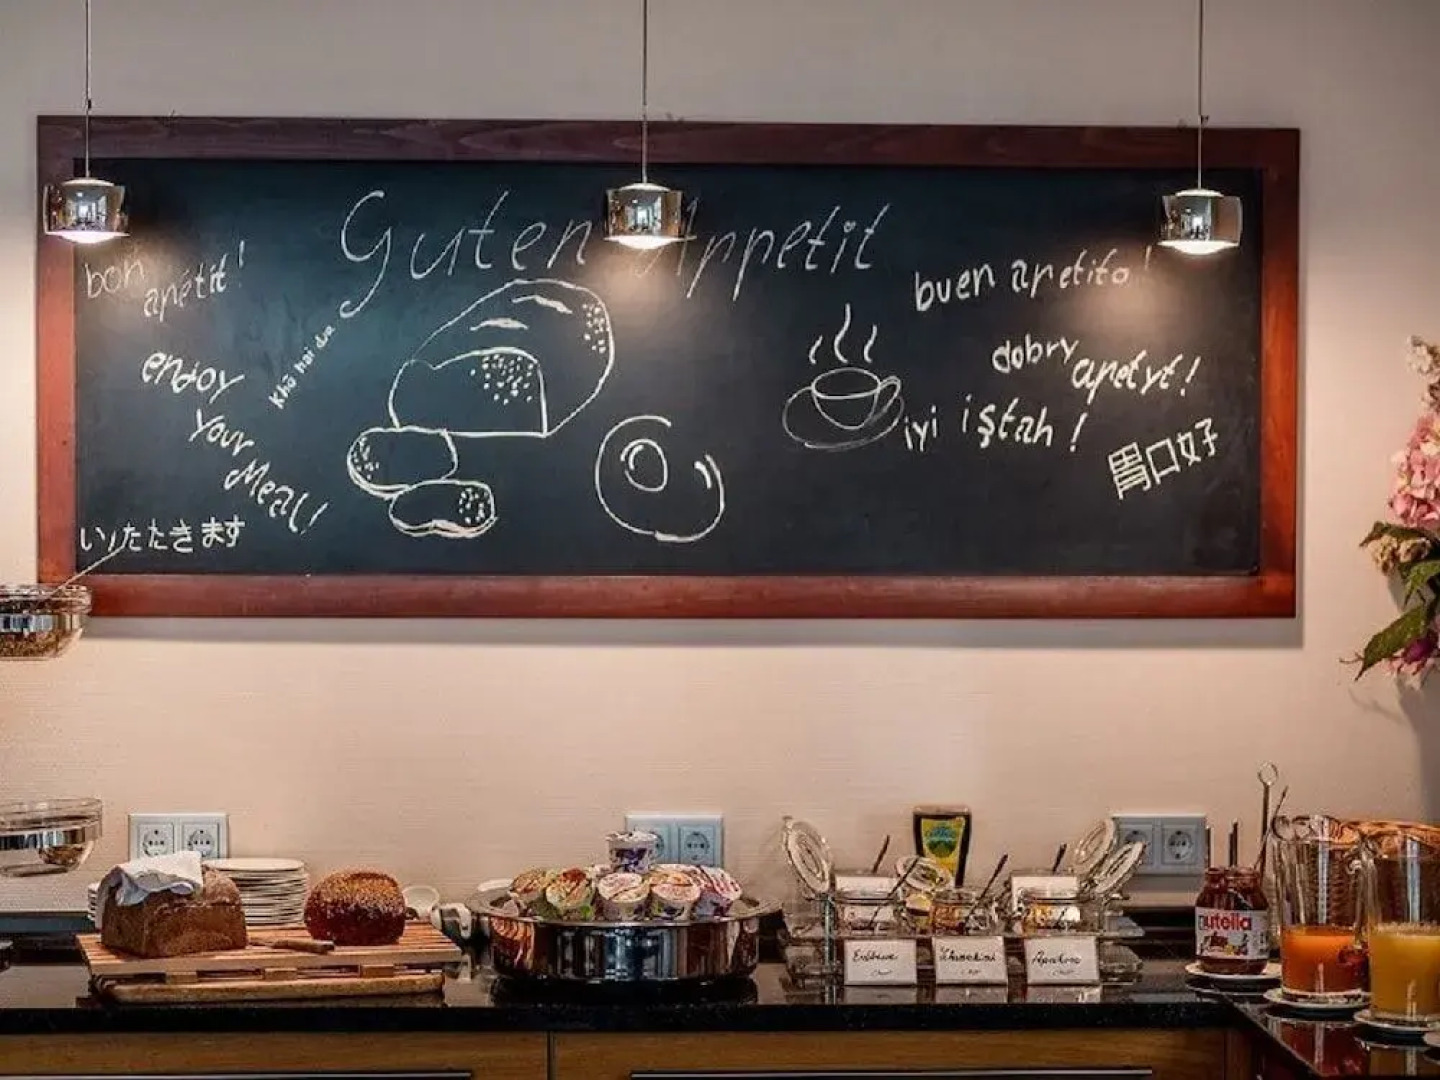 Guten Appetit
bon
apétit!
enjoy
your
Meal!
Khô hai dua
いただきます
buen apetito!
dobry
apetyt!
iyi iştah!
胃口好
nutella